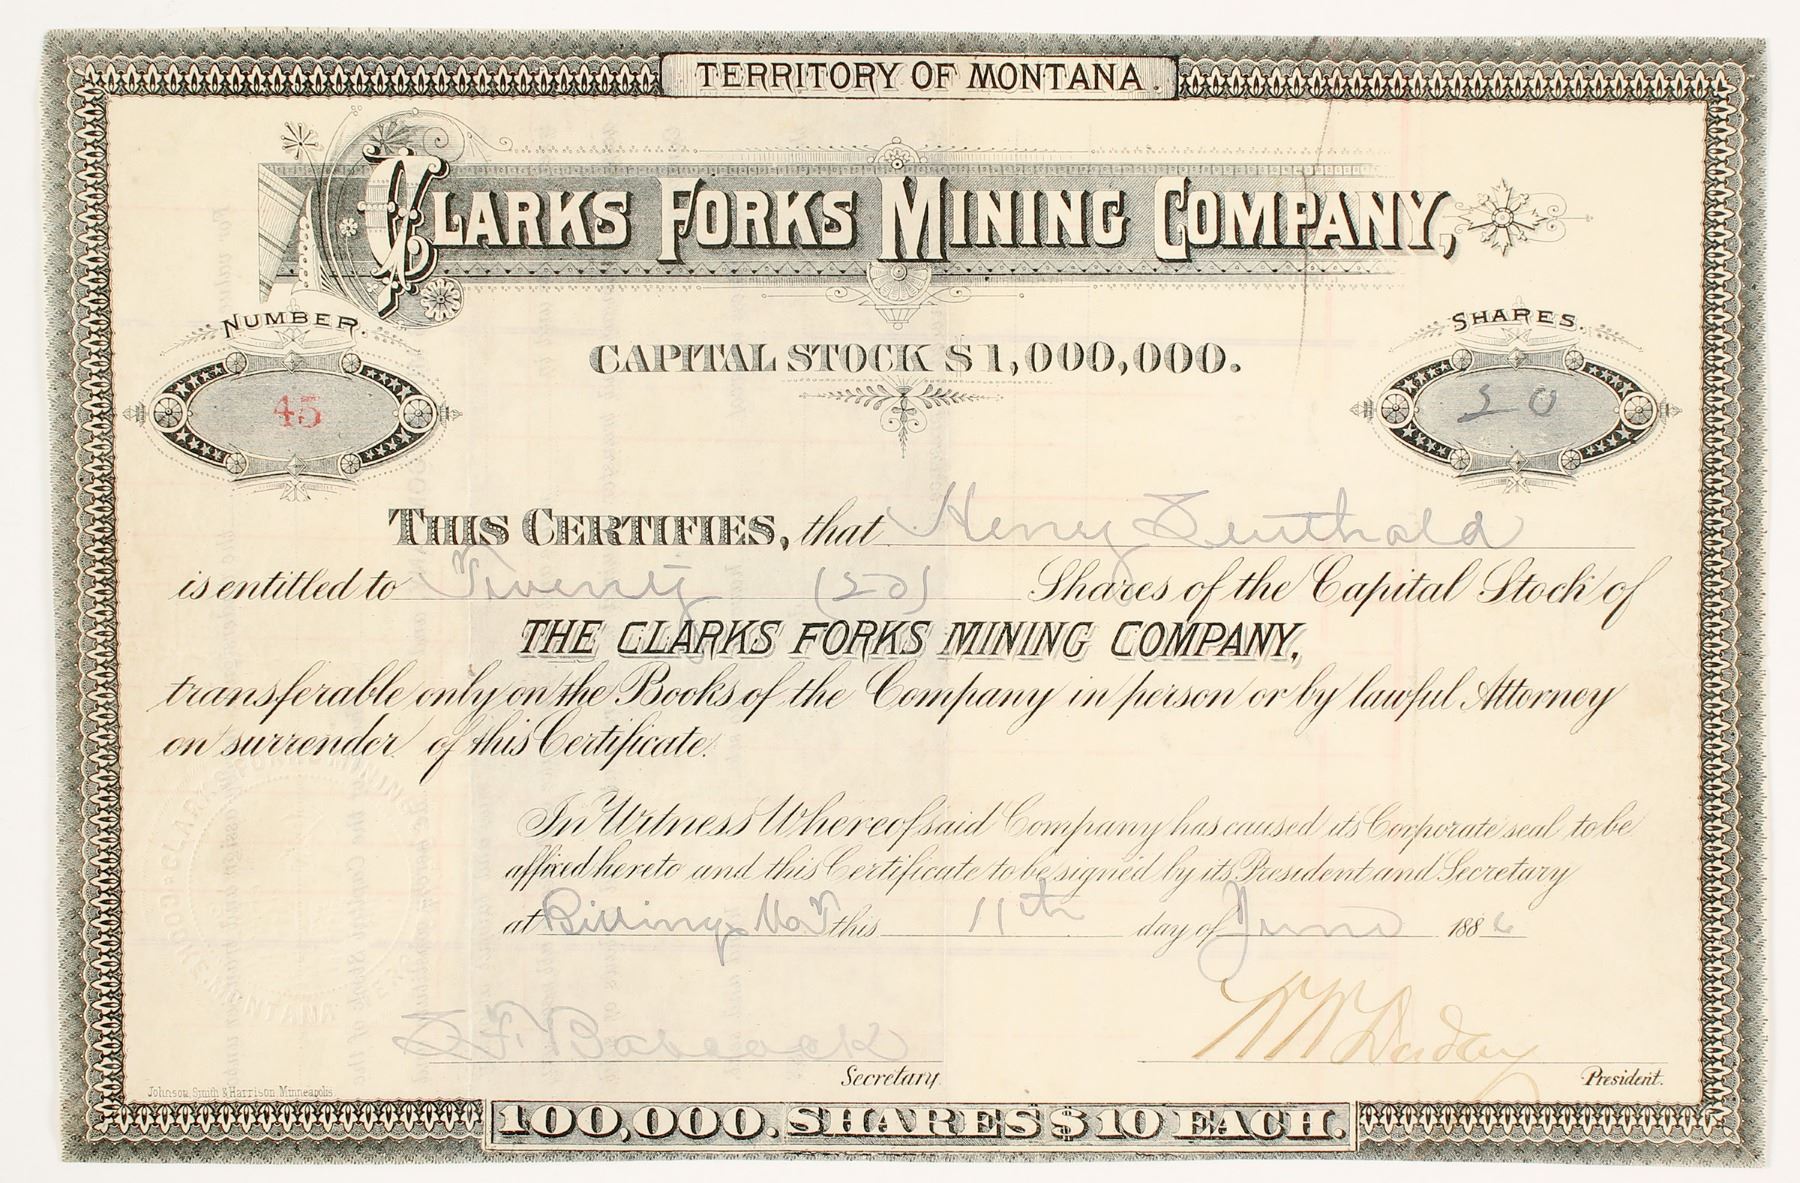 TERRITORY OF MONTANA.
CLARKS FORKS MINING COMPANY,
NUMBER.
SHARES.
CAPITAL STOCK $1,000,000.
45
20
THIS CERTIFIES, that Henry
is entitled to Twenty (20) Shares of the Capital Stock of
THE CLARKS FORKS MINING COMPANY,
transferable only on the Books of the Company in person or by lawful Attorney
on surrender of this Certificate.
In Witness Whereof said Company has caused its Corporate seal to be
affixed hereto and this Certificate to be signed by its President and Secretary
at Billings this 11th day of June 1886
Babcock
Secretary.
President.
Johnson, Smith & Harrison, Minneapolis
100,000. SHARES $10 EACH.